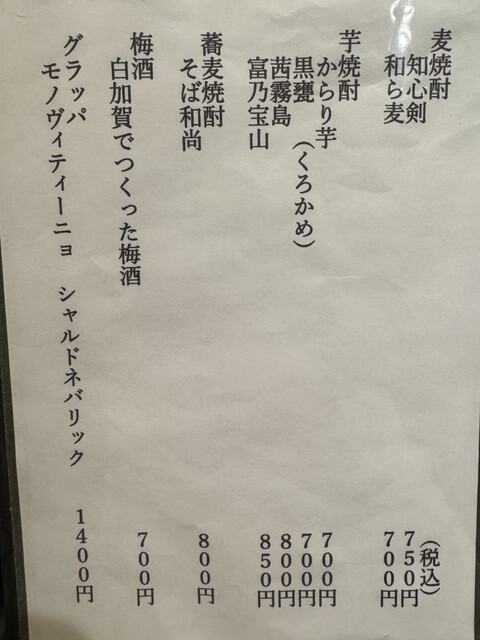 麦焼酎 (税込)
知心剣 750円
和ら麦 700円
芋焼酎
からり芋 700円
黒甕(くろかめ) 700円
茜霧島 800円
富乃宝山 850円
蕎麦焼酎
そば和尚 800円
梅酒
白加賀でつくった梅酒 700円
グラッパ
モノヴィティーニョ シャルドネバリック 1400円